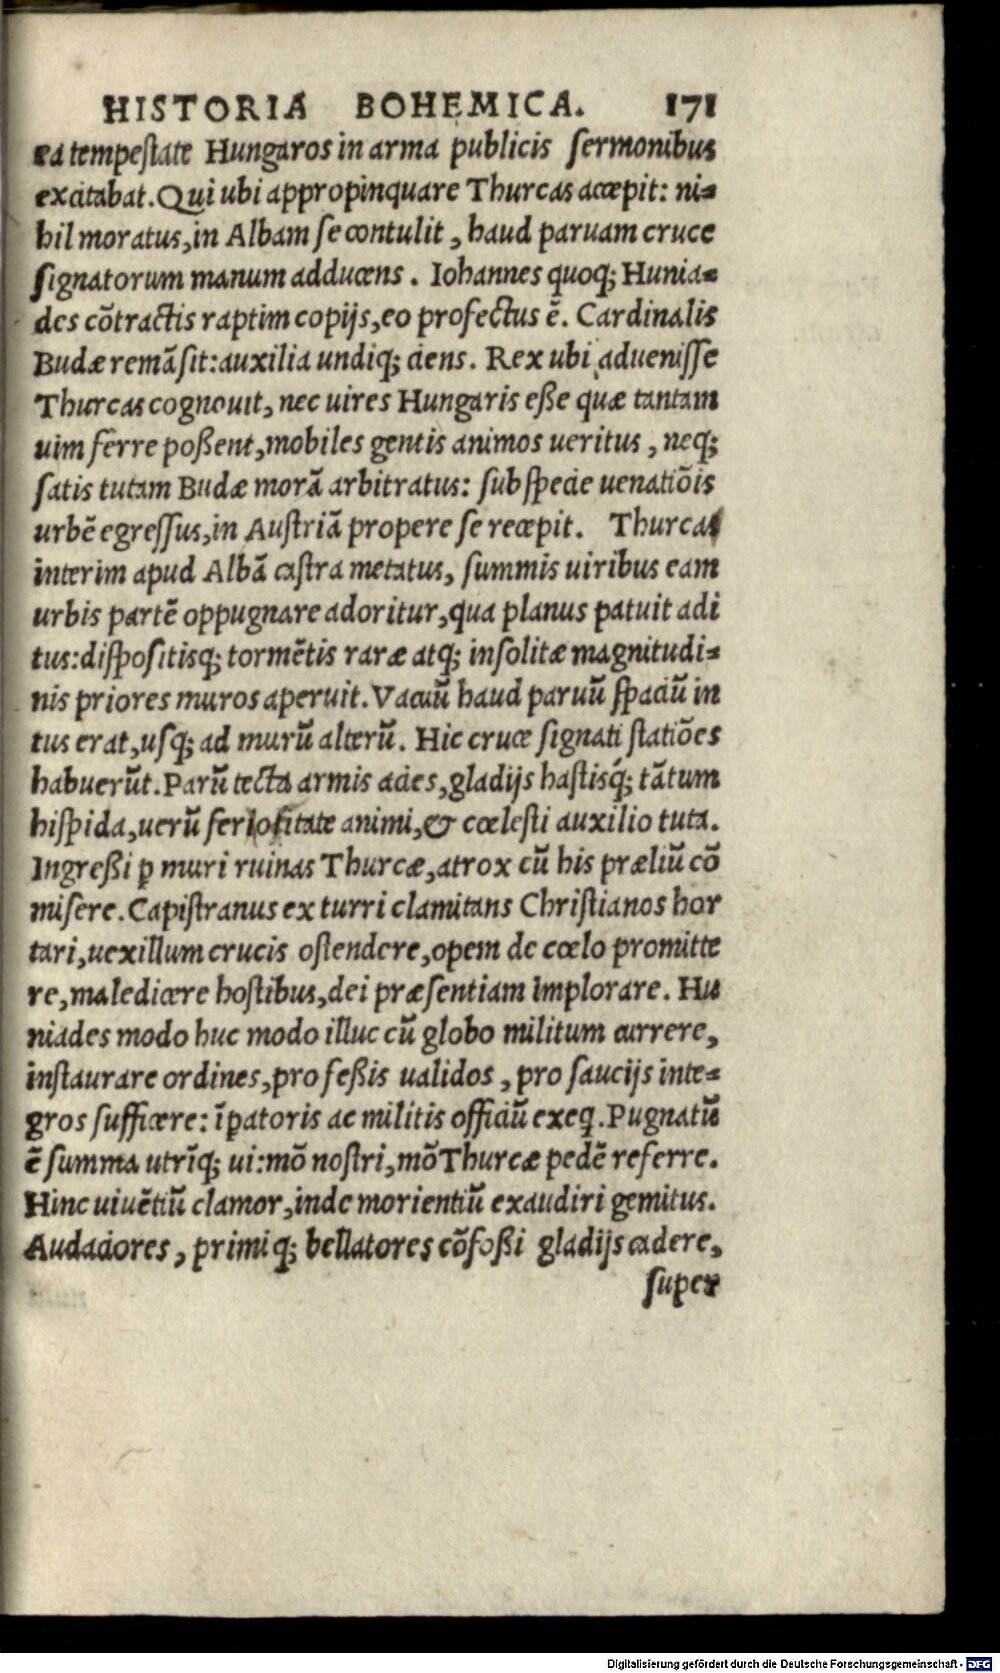 HISTORIA BOHEMICA. 171
ea tempeſtate Hungaros in arma publicis ſermonibus
excitabat. Qui ubi appropinquare Thurcas accepit: ni-
hil moratus, in Albam ſe contulit, haud paruam cruce
ſignatorum manum adducens. Iohannes quoq; Hunia-
des cōtractis raptim copijs, eo profectus ē. Cardinalis
Budæ remāſit: auxilia undiq; ciens. Rex ubi adueniſſe
Thurcas cognouit, nec uires Hungaris eſſe quæ tantam
uim ferre poſſent, mobiles gentis animos ueritus, neq;
ſatis tutam Budæ morā arbitratus: ſub ſpecie uenatiōis
urbē egreſſus, in Auſtriā propere ſe recepit. Thurcas
interim apud Albā caſtra metatus, ſummis uiribus eam
urbis partē oppugnare adoritur, qua planus patuit adi
tus: diſpoſitisq; tormētis raræ atq; inſolitæ magnitudi-
nis priores muros aperuit. Vacuū haud paruū ſpaciū in
tus erat, uſq; ad murū alterū. Hic cruce ſignati ſtatiōes
habuerūt. Parū tecta armis acies, gladijs haſtisq́; tātum
hiſpida, uerū ferioſitate animi, & cœleſti auxilio tuta.
Ingreſſi ꝑ muri ruinas Thurcæ, atrox cū his præliū cō
miſere. Capiſtranus ex turri clamitans Chriſtianos hor
tari, uexillum crucis oſtendere, opem de cœlo promitte
re, maledicere hoſtibus, dei præſentiam implorare. Hu
niades modo huc modo illuc cū globo militum currere,
inſtaurare ordines, pro feſſis ualidos, pro ſaucijs inte-
gros ſufficere: īꝑatoris ac militis officiū exeq. Pugnatū
ē ſumma utrīq; ui: mō noſtri, mō Thurcæ pedē referre.
Hinc uiuētiū clamor, inde morientiū exaudiri gemitus.
Audaciores, primiq; bellatores cōfoſſi gladijs cadere,
ſuper
Digitalisierung gefördert durch die Deutsche Forschungsgemeinschaft - DFG